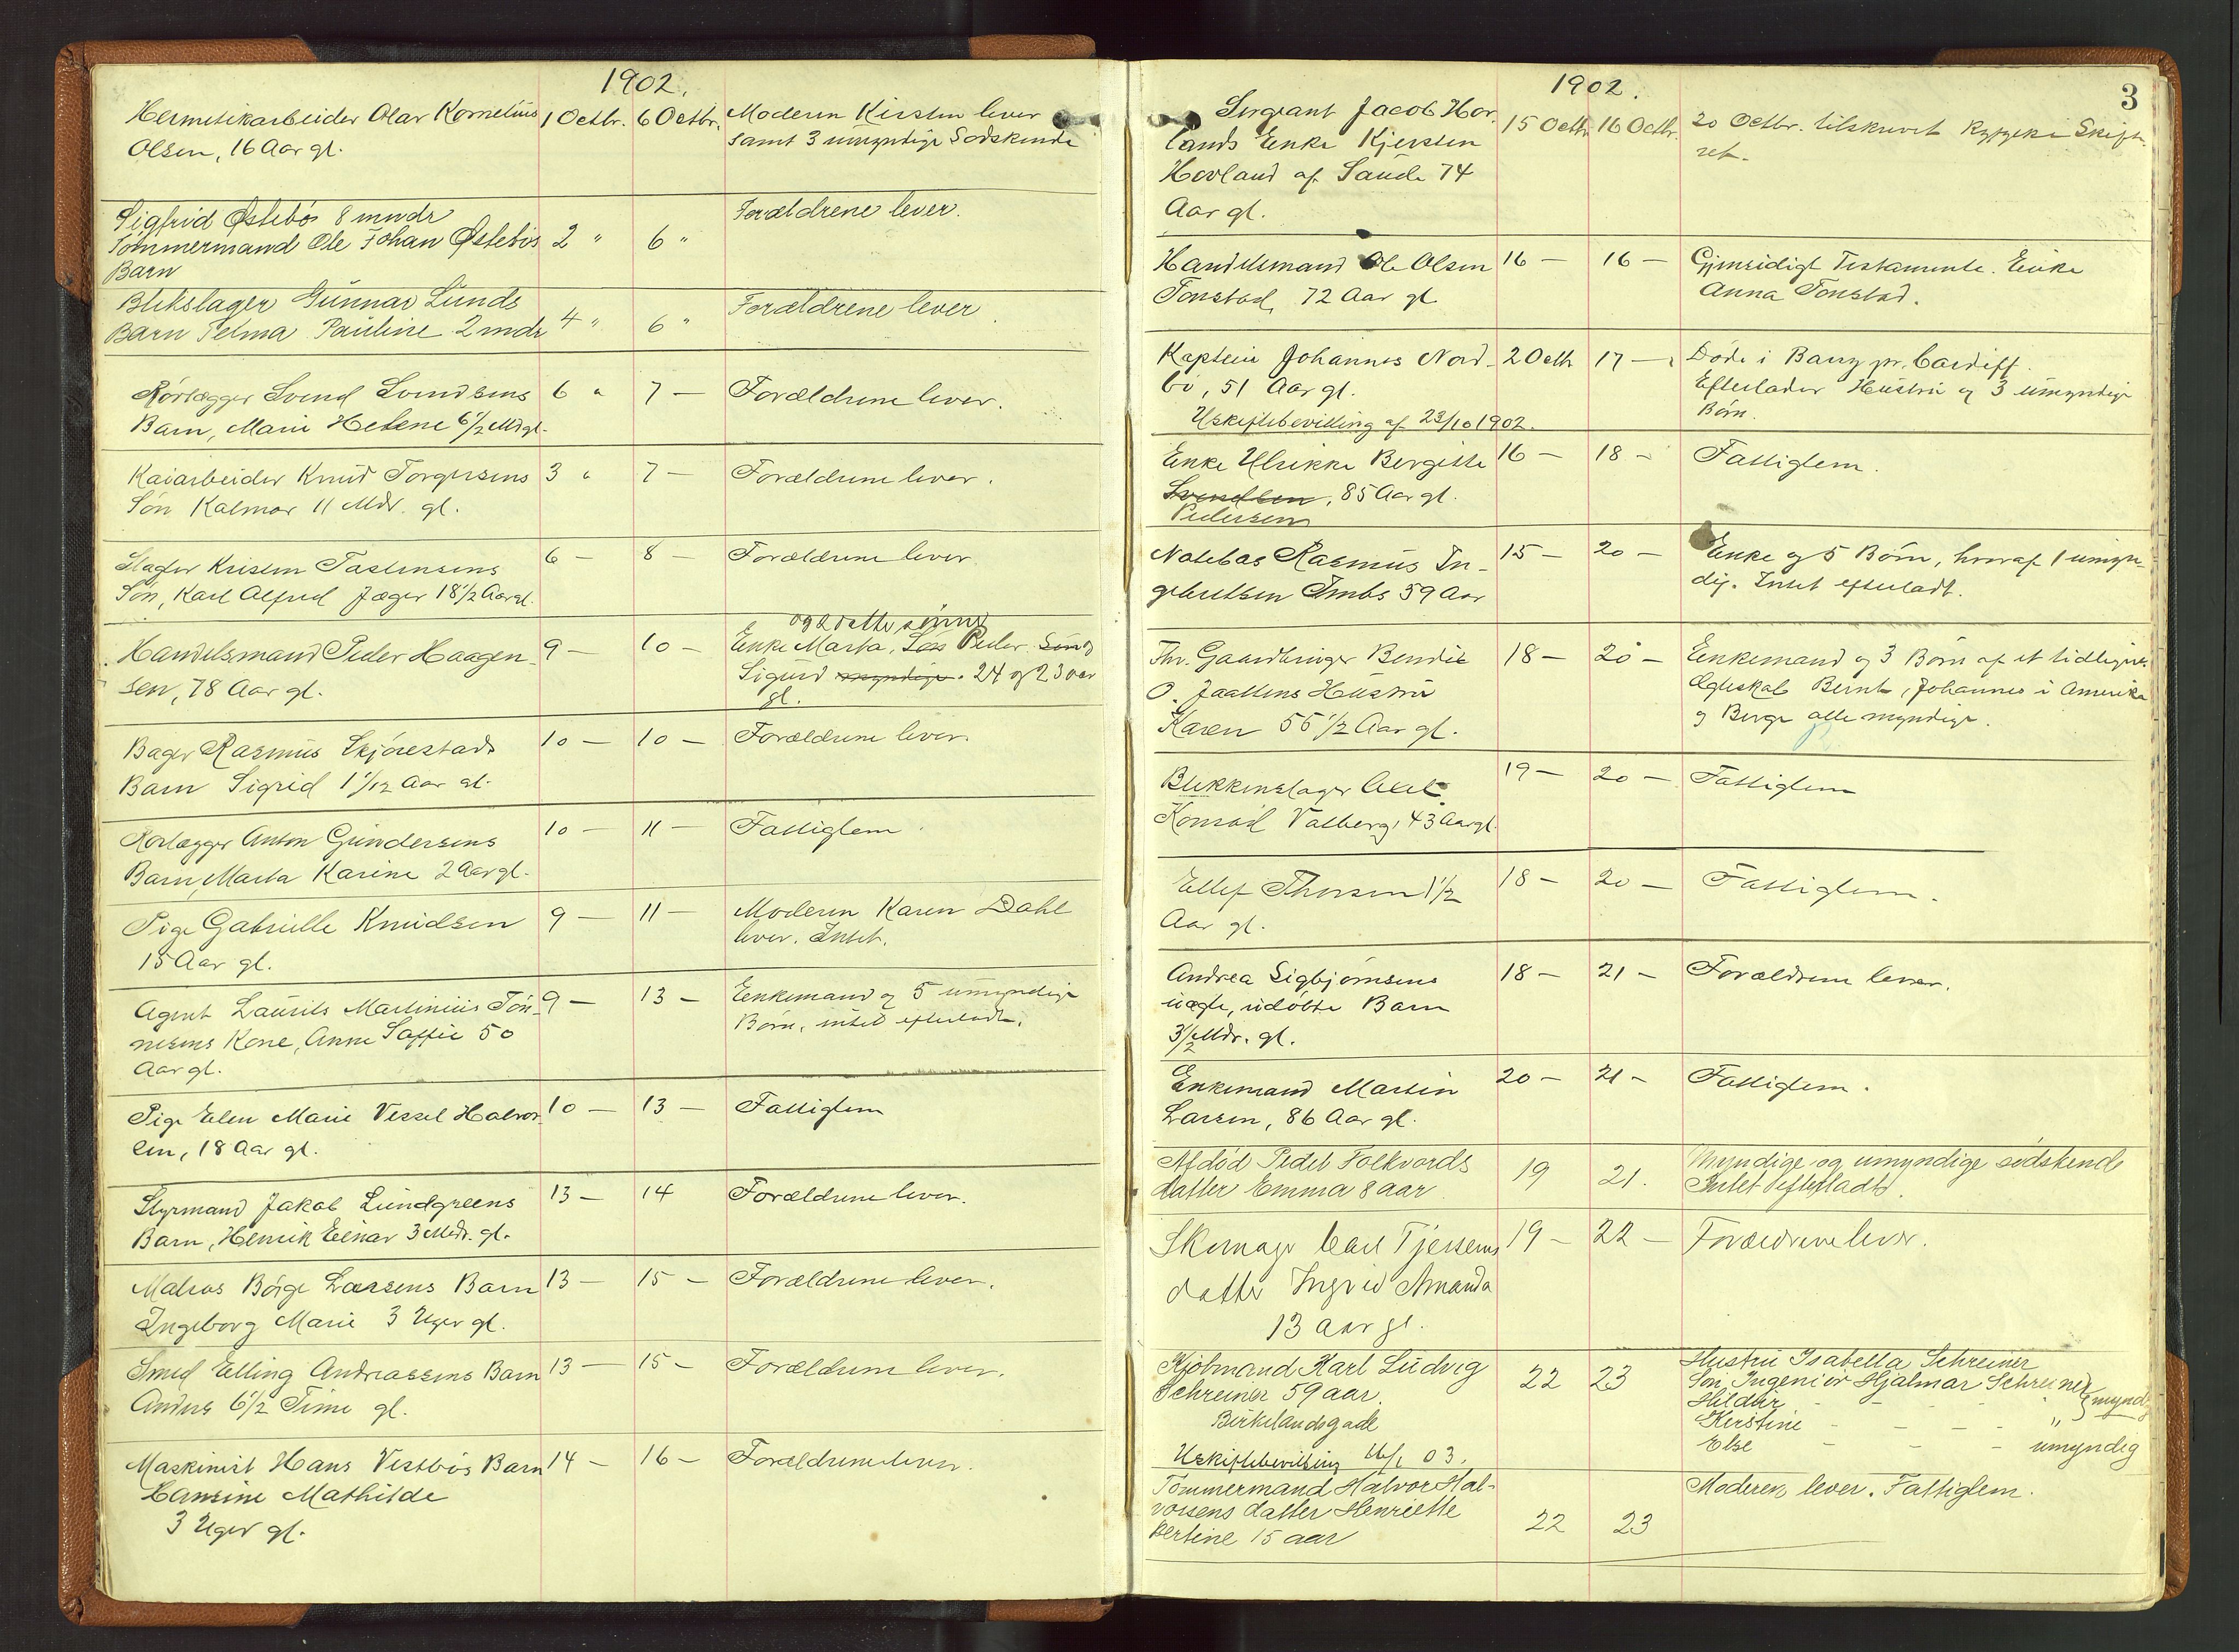 1902.
Hermetikarbeider Olav Kornelius 1 Octbr. 6 Octbr. Moderen Kirsten lever
Olsen, 16 Aar gl. samt 3 umyndige Sødskende
Sigfrid Østebös 8 mndr Forældrene lever.
Tömmermand Ole Johan Østebös 2 " 6 "
Barn
Blikslager Gunnar Lunds Forældrene lever
Barn Selma Pauline 2 mndr 4 " 6 "
Rörlægger Svend Svendsens 6 " 7 — Forældrene lever.
Barn, Marie Helene 6 1/2 Md gl.
Kaiarbeider Knud Torgersens 3 " 7 — Forældrene lever.
Sön Kalmar 11 Mdr. gl.
Slagter Kristen Tastensens 6 — 8 — Forældrene lever
Sön, Karl Alfred Jæger 18 1/2 Aar gl.
og 2 dattersönner
Handelsmand Peder Haagen- 9 — 10 — Enke Marta, Peder og
sen, 78 Aar gl. Sigurd 24 og 23 aar
gl.
Bager Rasmus Skjörestads 10 — 10 — Forældrene lever.
Barn Sigrid 1 1/12 Aar gl.
Rörlægger Anton Gundersens 10 — 11 — Fattiglem
Barn, Marta Karine 2 Aar gl.
Pige Gabrielle Knudsen 9 — 11 — Moderen Karen Dahl
15 Aar gl. lever. Intet.
Agent Laurits Martinius Tön- 9 — 13 — Enkemand og 5 umyndige
nesens Kone, Anne Soffie 50 Börn, intet efterladt.
Aar gl.
Pige Elen Marie Vessel Halvor- 10 — 13 — Fattiglem
sen, 18 Aar gl.
Styrmand Jakob Lundgreens 13 — 14 Forældrene lever.
Barn, Henrik Einar 3 Mdr. gl.
Matros Börge Larsens Barn 13 — 15 — Forældrene lever.
Ingeborg Marie 3 Uger gl.
Smed Elling Andreassens Barn 13 — 15 — Forældrene lever.
Anders 6 1/2 Time gl.
Maskinist Hans Vestbös Barn 14 — 16 — Forældrene lever.
Hansine Mathilde
3 Uger gl.
1902.
3
Sergeant Jacob Hov- 15 Octbr 16 Octbr. 20 Octbr. tilskrevet Ryfylke Skifte-
lands Enke Kjersten ret.
Hovland af Saude 74
Aar gl.
Handelsmand Ole Olsen 16 — 16 — Gjensidigt Testamente. Enke
Tonstad, 72 Aar gl. Anna Tonstad.
Kaptein Johannes Nord- 2 Octbr 17 — Döde i Barry pr. Cardiff.
bö, 51 Aar gl. Efterlader Hustru og 3 umyndige
Uskiftebevilling af 23/10 1902. Börn.
Enke Ulrikke Bergitte 16 — 18 — Fattiglem.
Svendsen, 85 Aar gl.
Pedersen
Notebas Rasmus In- 15 — 20 — Enke og 5 Börn, hvoraf 1 umyn-
gebretsen Imbs 59 Aar dig. Intet efterladt.
Fhv. Gaardbruger Bendik 18 — 20 — Enkemand og 3 Börn af et tidligere
O. Jaattens Hustru Ægteskab Bernt, Johannes i Amerika
Karen 55 1/2 Aar gl. og Berge alle myndige.
Blikkenslager Carl 19 — 20 — Fattiglem
Konrad Valberg, 43 Aar gl.
Ellef Thorsen 1 1/2 18 — 20 — Fattiglem.
Aar gl.
Andrea Sigbjörnsens 18 — 21 — Forældrene lever.
uægte, udöbte Barn
3 1/2 Mdr. gl.
Enkemand Martin 20 — 21 — Fattiglem.
Larsen, 86 Aar gl.
Afdöd Peder Folkvords 19 21. Myndige og umyndige södskende
datter Emma 8 aar Intet efterladt.
Skomager Carl Tjersens 19 — 22 — Forældrene lever.
datter Ingrid Amanda
13 Aar gl.
Kjöbmand Karl Ludvig 22 23 Hustru Isabella Schreiner
Schreiner 59 aar. Sön, Ingeniör Hjalmar Schreiner
Birkelandsgade Hildur - - - myndig
Kirstine - - - "
Uskiftebevilling 16/1 03. Else - - - umyndig
Tömmermand Halvor Hal- Moderen lever. Fattiglem.
vorsens datter Henriette 22 23
Bertine 15 aar